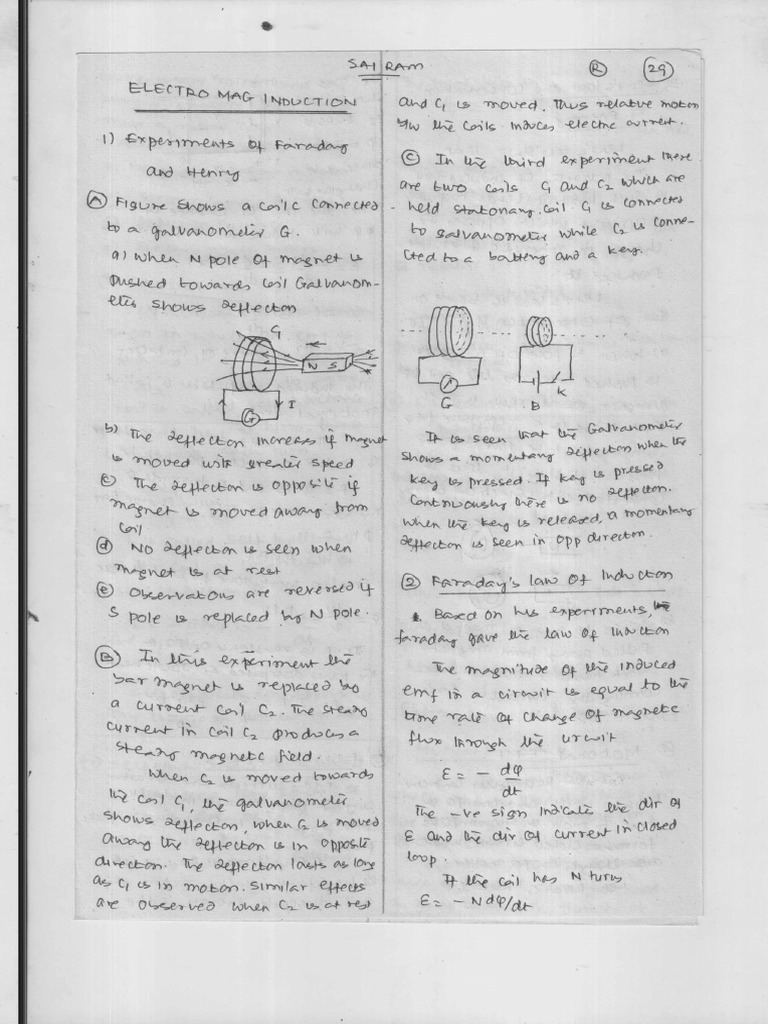 SAI RAM
R
29
ELECTRO MAG INDUCTION
1) Experiments of Faraday
and Henry
A Figure shows a coil C connected
to a galvanometer G.
a) When N pole of magnet is
pushed towards coil Galvanom-
eter shows deflection
C1
N S
I
G
b) The deflection increases if magnet
is moved with greater speed
c The deflection is opposite if
magnet is moved away from
coil
d No deflection is seen when
magnet is at rest
e Observations are reversed if
S pole is replaced by N pole.
B In this experiment the
bar magnet is replaced by
a current coil C2. The steady
current in coil C2 produces a
steady magnetic field.
When C2 is moved towards
the coil C1, the galvanometer
shows deflection, when C2 is moved
away the deflection is in opposite
direction. The deflection lasts as long
as C1 is in motion. Similar effects
are observed when C2 is at rest
and C1 is moved. Thus relative motion
b/w the coils induces electric current.
C In the third experiment there
are two coils C1 and C2 which are
held stationary. Coil C1 is connected
to galvanometer while C2 is conne-
cted to a battery and a key.
G
B
K
It is seen that the Galvanometer
shows a momentary deflection when the
key is pressed. If key is pressed
continuously there is no deflection.
When the key is released, a momentary
deflection is seen in opp direction.
2 Faraday's law of Induction
Based on his experiments,
faraday gave the law of Induction
The magnitude of the induced
emf in a circuit is equal to the
time rate of change of magnetic
flux through the circuit
ε = - dφ/dt
The -ve sign indicate the dir of
ε and the dir of current in closed
loop.
If the coil has N turns
ε = - N dφ/dt